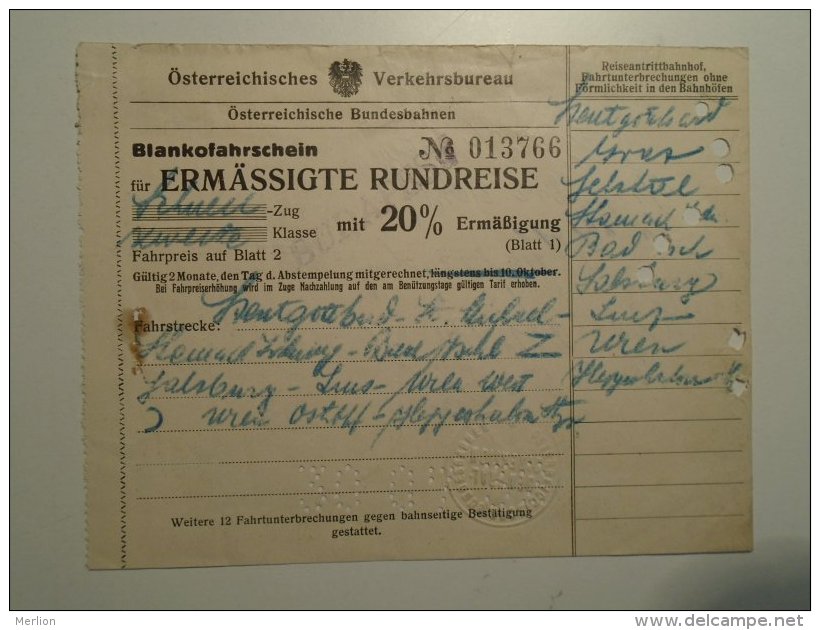 Österreichisches Verkehrsbureau
Österreichische Bundesbahnen
Blankofahrschein № 013766
für ERMÄSSIGTE RUNDREISE
-Zug mit 20% Ermäßigung
zweite Klasse (Blatt 1)
Fahrpreis auf Blatt 2
Gültig 2 Monate, den Tag d. Abstempelung mitgerechnet, längstens bis 10. Oktober.
Bei Fahrpreiserhöhung wird im Zuge Nachzahlung auf den am Benützungstage gültigen Tarif erhoben.
Fahrstrecke: Szentgotthard - St. Michael -
Stainach Irdning - Bad Ischl
Salzburg - Linz - Wien West
Wien Ostbf - Hegyeshalom
Weitere 12 Fahrtunterbrechungen gegen bahnseitige Bestätigung
gestattet.
Reiseantrittbahnhof,
Fahrtunterbrechungen ohne
Förmlichkeit in den Bahnhöfen
Szentgotthard
Graz
Selztal
Stainach
Bad Ischl
Salzburg
Linz
Wien
Hegyeshalom
Merlion
www.delcampe.net